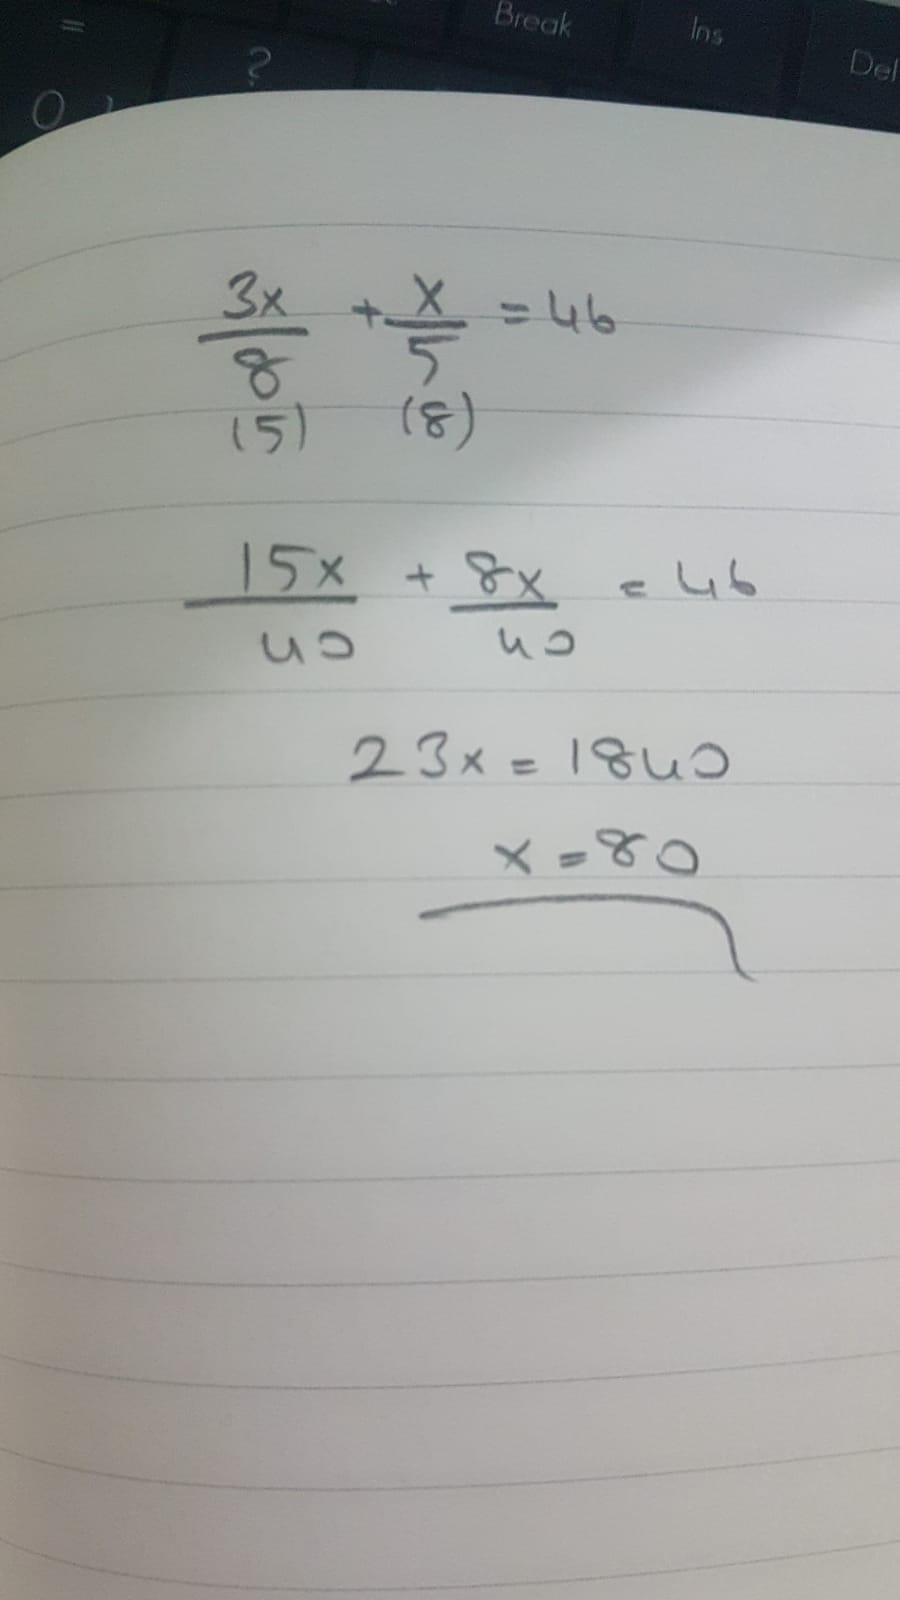 Break Ins Del
= ?
0
3x/8 + x/5 = 46
(5) (8)
15x/40 + 8x/40 = 46
23x = 1840
x = 80